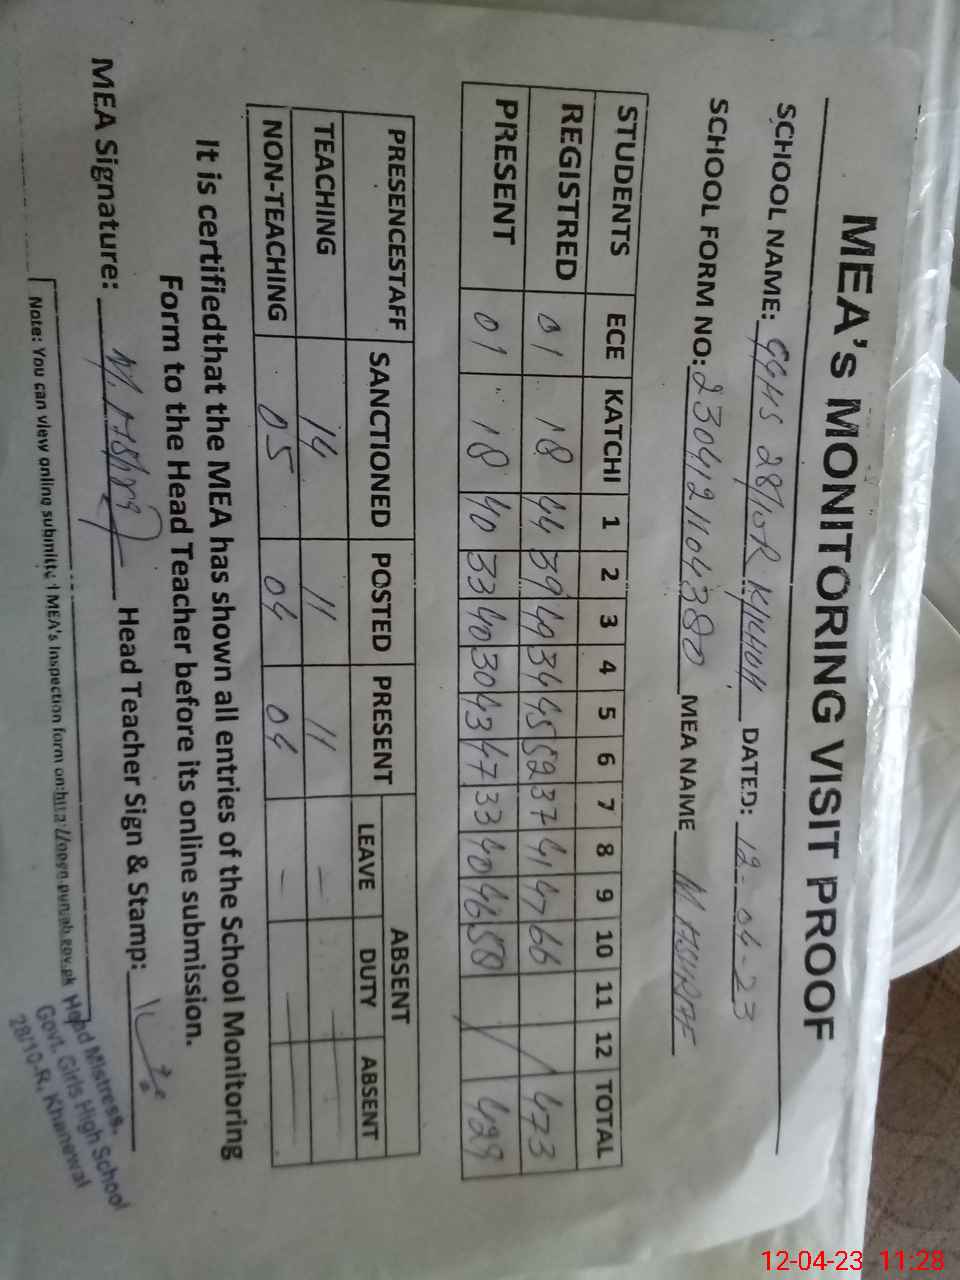 MEA's MONITORING VISIT PROOF
SCHOOL NAME: GGHS 28/10R DATED: 12-04-23
SCHOOL FORM NO: 230412104380 MEA NAME M ASHRAF
STUDENTS ECE KATCHI 1 2 3 4 5 6 7 8 9 10 11 12 TOTAL
REGISTRED 01 18 44 39 49 34 45 52 37 41 47 66 473
PRESENT 01 18 40 33 40 30 43 47 33 40 46 58 429
PRESENCESTAFF SANCTIONED POSTED PRESENT ABSENT
LEAVE DUTY ABSENT
TEACHING 14 11 11 -
NON-TEACHING 05 04 04 -
It is certifiedthat the MEA has shown all entries of the School Monitoring
Form to the Head Teacher before its online submission.
MEA Signature: M. Ashraf Head Teacher Sign & Stamp:
Head Mistress,
Govt. Girls High School
28/10-R, Khanewal
Note: You can view online submitted MEA's Inspection form on:
12-04-23 11:28